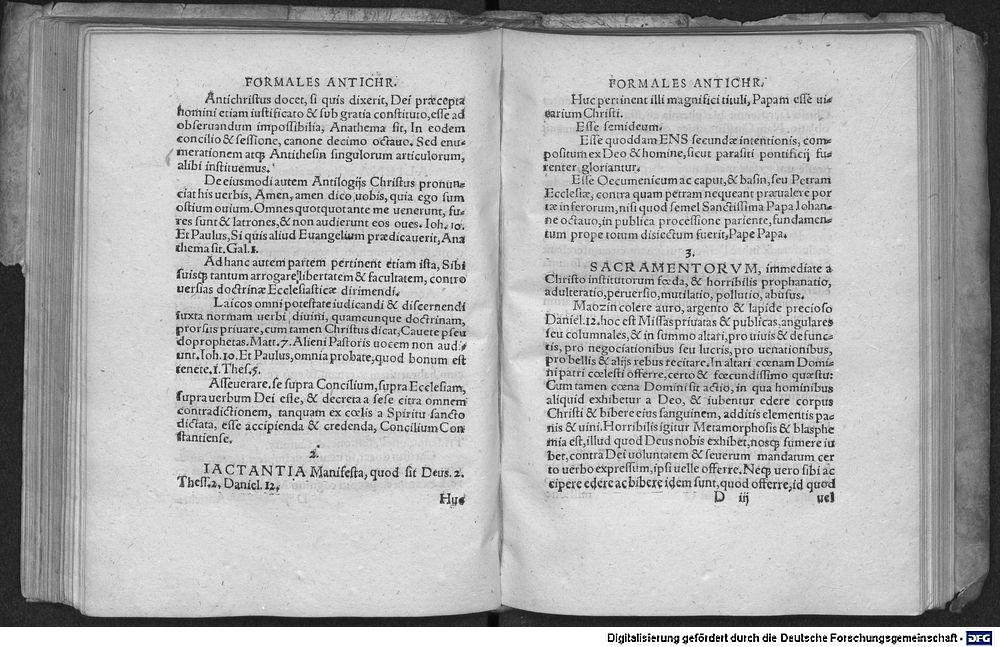 FORMALES ANTICHR.
Antichristus docet, si quis dixerit, Dei præcepta
homini etiam iustificato & sub gratia constituto, esse ad
obseruandum impossibilia, Anathema sit, In eodem
concilio & sessione, canone decimo octauo. Sed enu-
merationem atq; Antithesin singulorum articulorum,
alibi instituemus.
De eiusmodi autem Antilogijs Christus pronun-
ciat his uerbis, Amen, amen dico uobis, quia ego sum
ostium ouium. Omnes quotquot ante me uenerunt, fu-
res sunt & latrones, & non audierunt eos oues. Ioh. 10.
Et Paulus, Si quis aliud Euangelium prædicauerit, Ana
thema sit. Gal. 1.
Ad hanc autem partem pertinent etiam ista, Sibi
suisq; tantum arrogare libertatem & facultatem, contro
uersias doctrinæ Ecclesiasticæ dirimendi.
Laicos omni potestate iudicandi & discernendi
iuxta normam uerbi diuini, quamcunque doctrinam,
prorsus priuare, cum tamen Christus dicat, Cauete pseu
doprophetas. Matt. 7. Alieni Pastoris uocem non audi-
unt. Ioh. 10. Et Paulus, omnia probate, quod bonum est
tenete. 1. Thes. 5.
Asseuerare, se supra Concilium, supra Ecclesiam,
supra uerbum Dei esse, & decreta a sese citra omnem
contradictionem, tanquam ex cœlis a Spiritu sancto
dictata, esse accipienda & credenda, Concilium Con
stantiense.
2.
IACTANTIA Manifesta, quod sit Deus. 2.
Thess. 2, Daniel. 12.
Huc
FORMALES ANTICHR.
Huc pertinent illi magnifici tituli, Papam esse ui-
carium Christi.
Esse semideum.
Esse quoddam ENS secundæ intentionis, com-
positum ex Deo & homine, sicut parasiti pontificij fu-
renter gloriantur.
Esse Oecumenicum ac caput, & basin, seu Petram
Ecclesiæ, contra quam petram nequeant præualere por
tæ inferorum, nisi quod semel Sanctissima Papa Iohan-
ne octauo, in publica processione pariente, fundamen-
tum prope totum disiectum fuerit, Pape Papa.
3.
SACRAMENTORVM, immediate a
Christo institutorum fœda, & horribilis prophanatio,
adulteratio, peruersio, mutilatio, pollutio, abusus.
Maozin colere auro, argento & lapide precioso
Daniel. 12. hoc est Missas priuatas & publicas, angulares
seu columnales, & in summo altari, pro uiuis & defunc-
tis, pro negociationibus seu lucris, pro uenationibus,
pro bellis & alijs rebus recitare. In altari cœnam Domi-
ni patri cœlesti offerre, certo & fœcundissimo quæstu:
Cum tamen cœna Domini sit actio, in qua hominibus
aliquid exhibetur a Deo, & iubentur edere corpus
Christi & bibere eius sanguinem, additis elementis pa-
nis & uini. Horribilis igitur Metamorphosis & blasphe
mia est, illud quod Deus nobis exhibet, nosq; sumere iu
bet, contra Dei uoluntatem & seuerum mandatum cer
to uerbo expressum, ipsi uelle offerre. Neq; uero sibi ac
cipere edere ac bibere idem sunt, quod offerre, id quod
D iij
uel
Digitalisierung gefördert durch die Deutsche Forschungsgemeinschaft - DFG